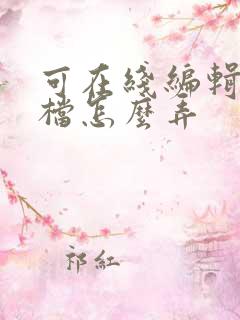 可在綫編輯
檔怎麽弄
祁紅